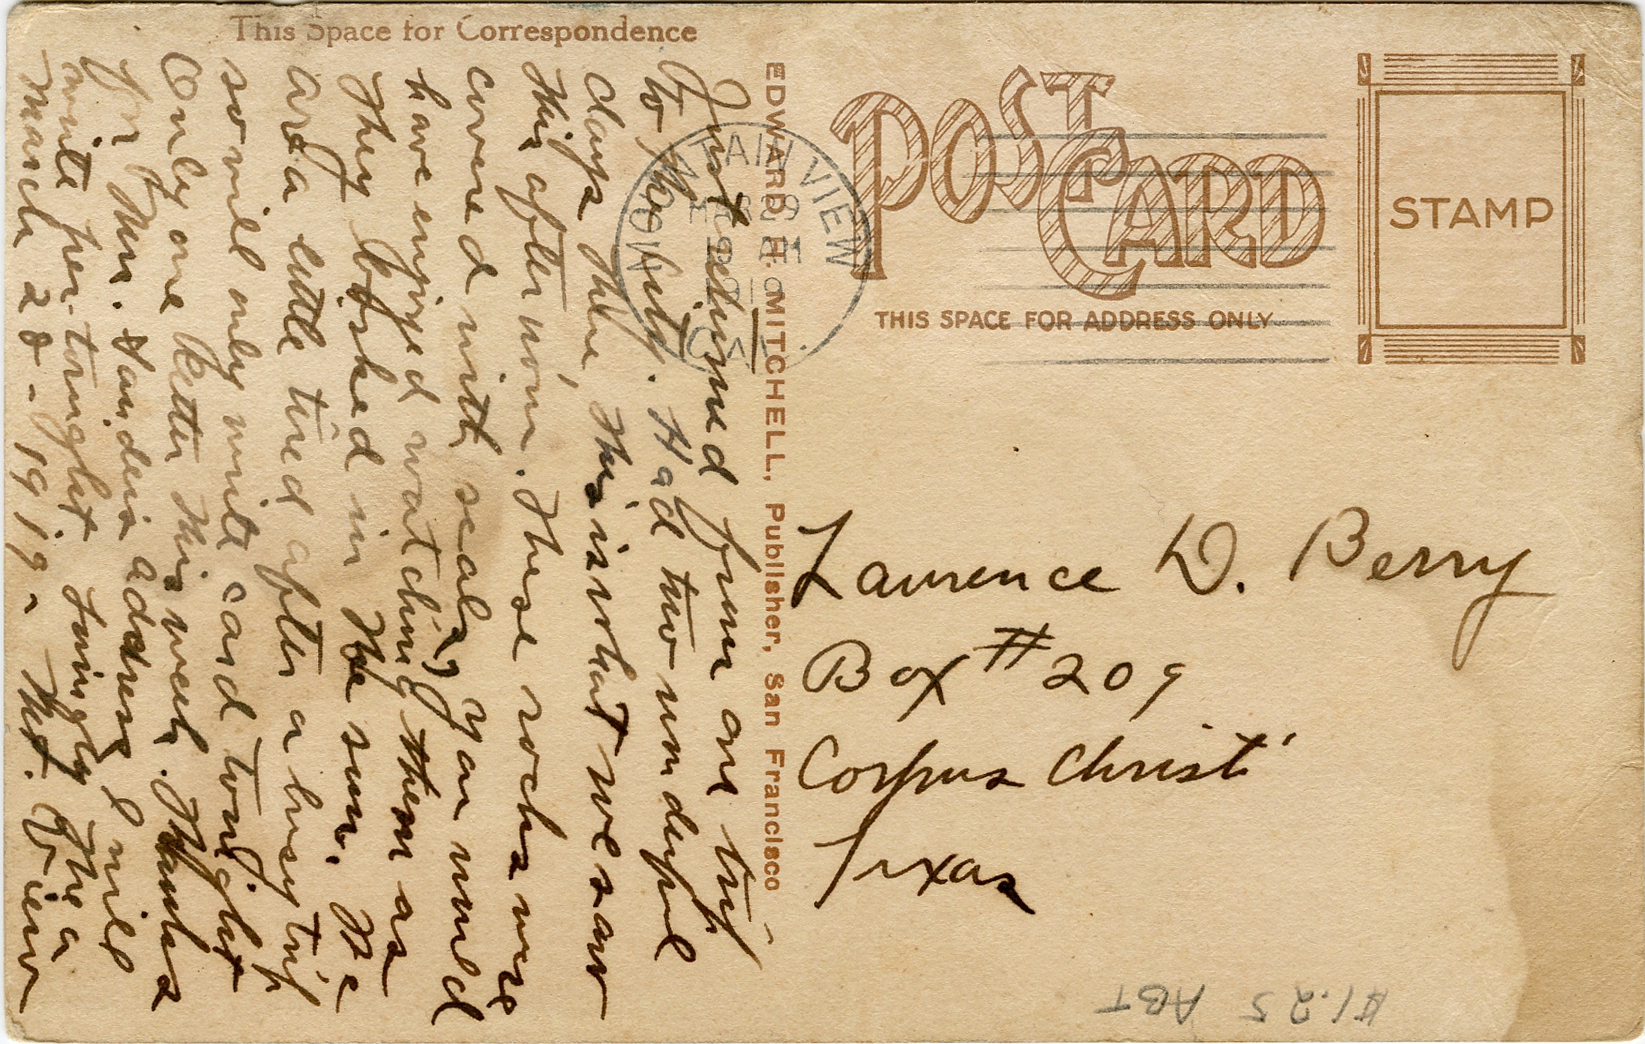 This Space for Correspondence
Just returned from our trip
to the city. Had two wonderful
days there, this is what we saw
this afternoon. These rocks were
covered with seals, you would
have enjoyed watching them as
they basked in the sun. We
are a little tired after a busy trip
so will only write card tonight
Only one letter this week. Thanks
for Mr. Sanders address I will
write her tonight. Lovingly Thea
March 28 - 1919 - Mt. View
EDWARD H. MITCHELL, Publisher, San Francisco
MOUNTAIN VIEW
MAR 29
AM
CAL
POST CARD
THIS SPACE FOR ADDRESS ONLY
STAMP
Laurence D. Berry
Box # 209
Corpus Christi
Texas
$1.25 ABT